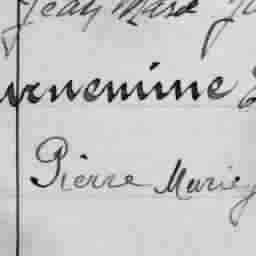 Jean Marie
urnemine
Pierre Marie